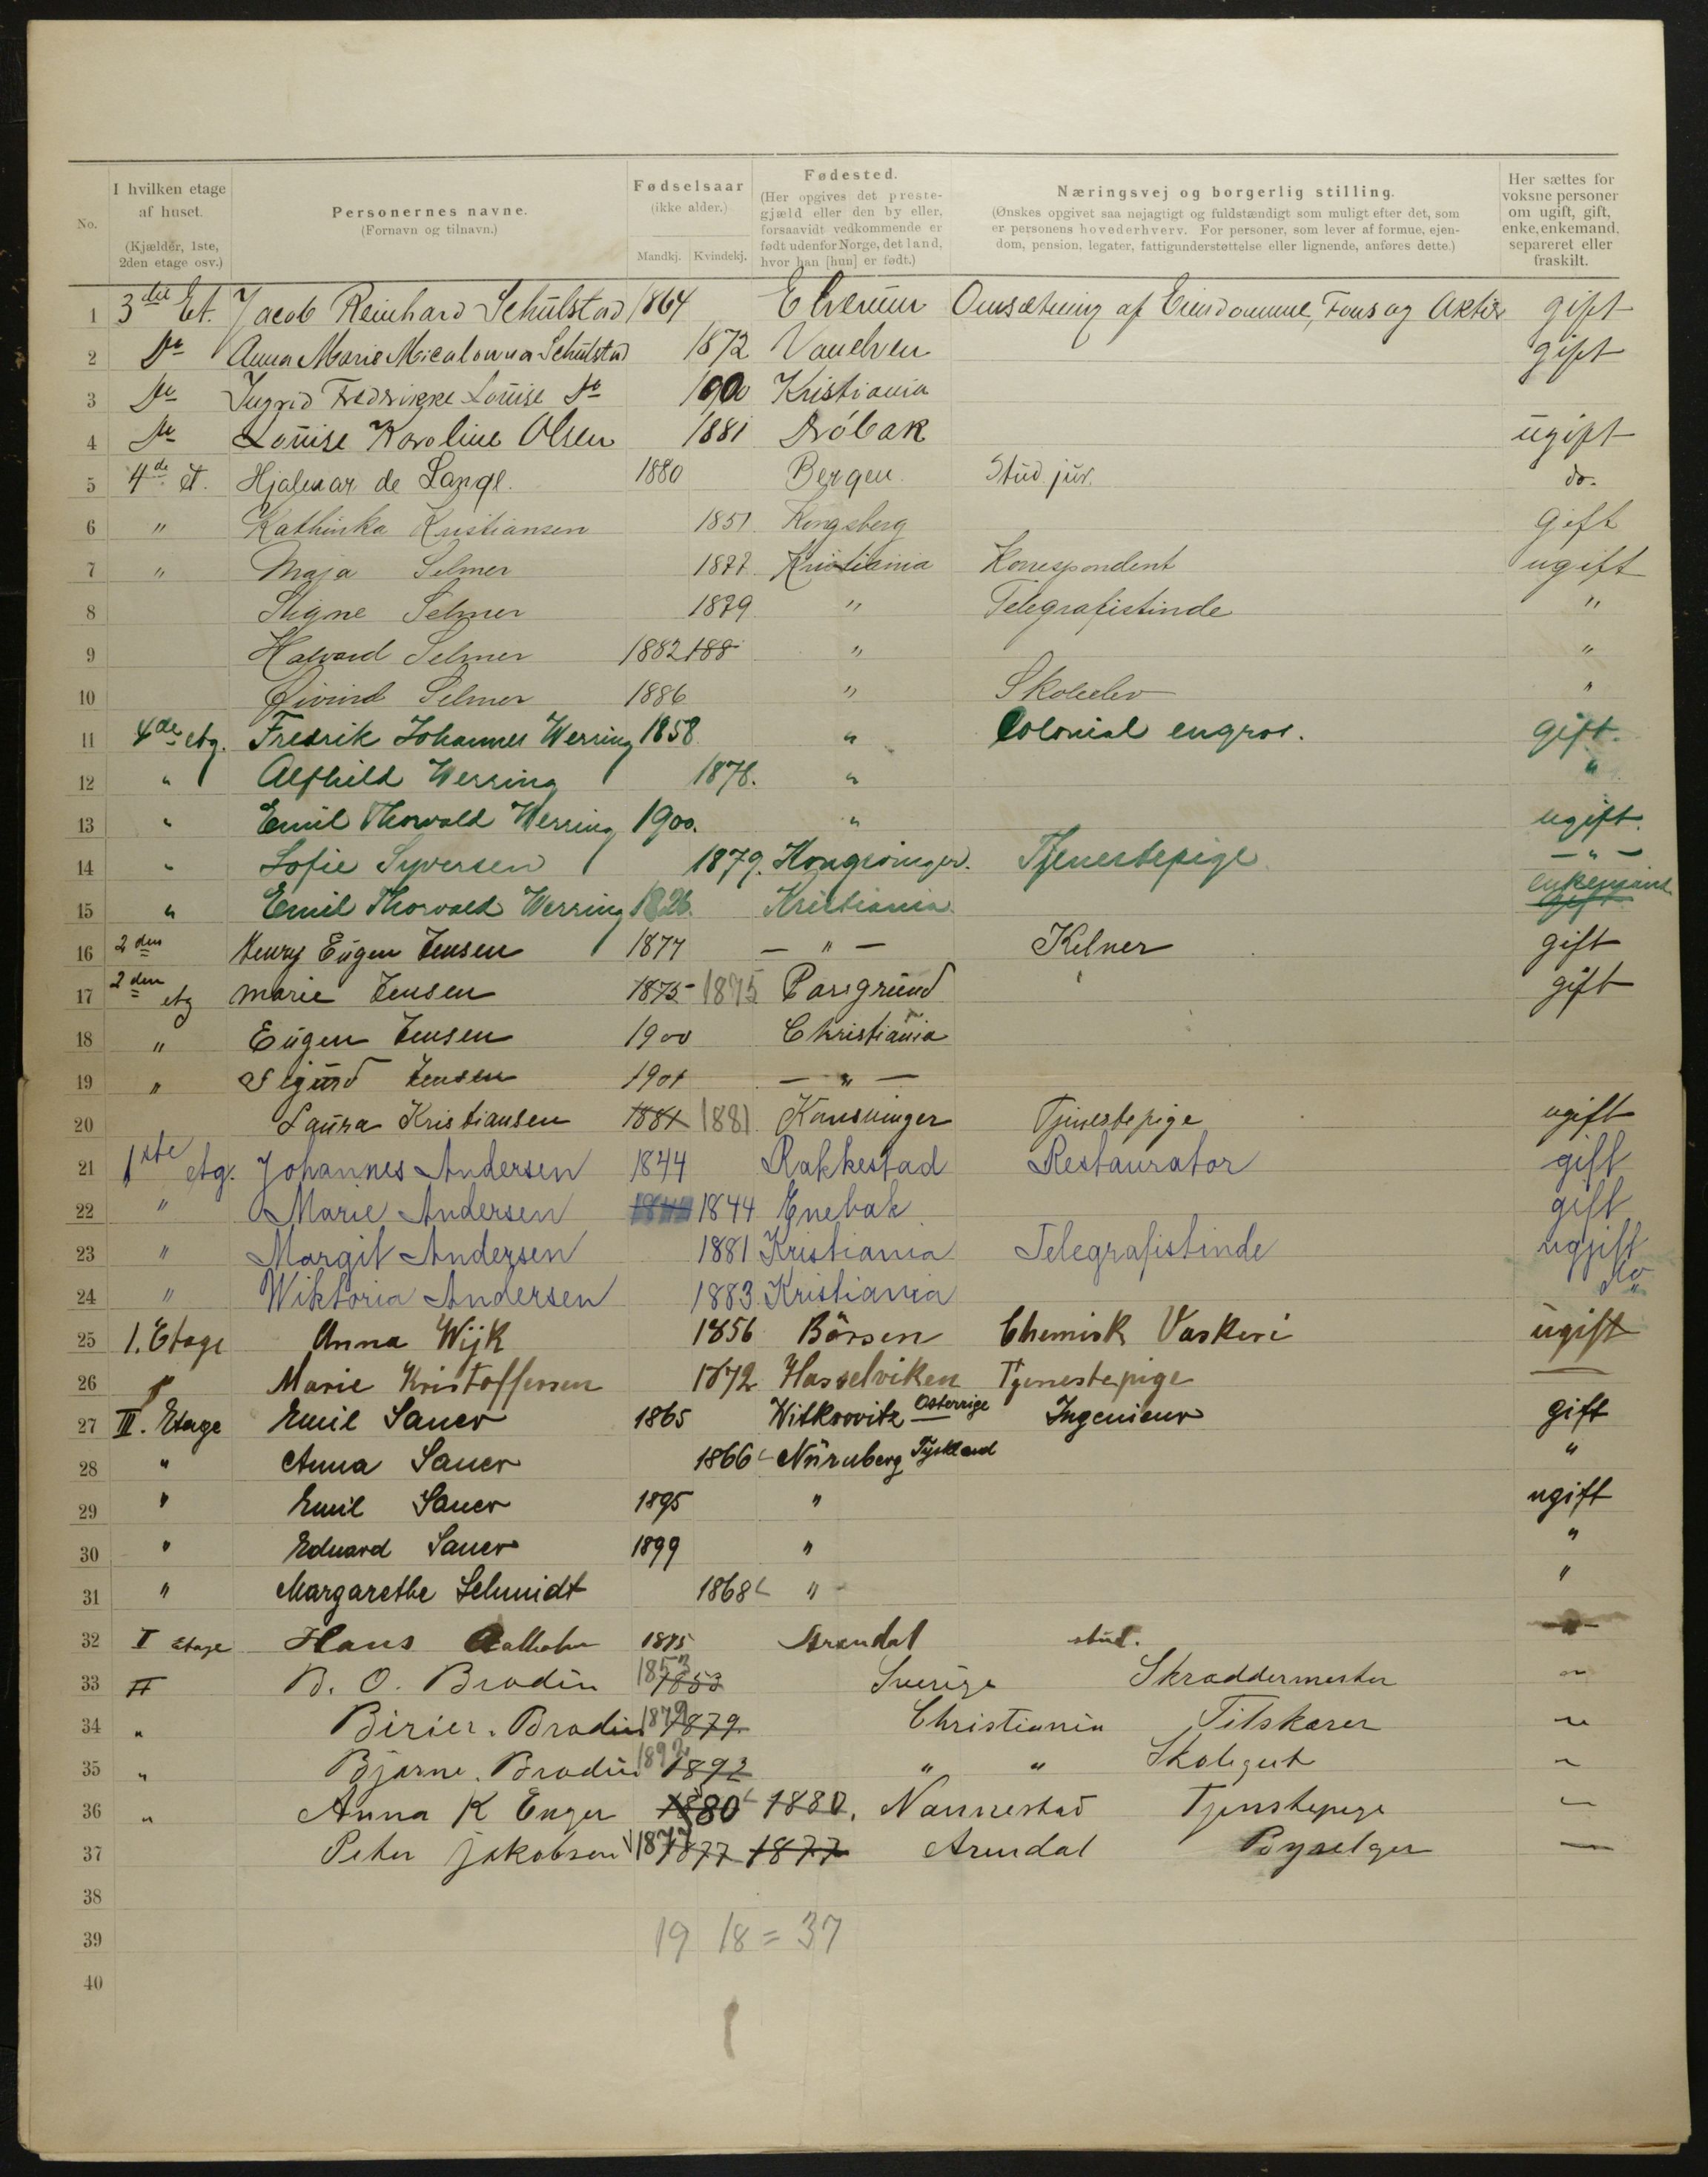 No.
I hvilken etage af huset. (Kjælder, 1ste, 2den etage osv.)
Personernes navne. (Fornavn og tilnavn.)
Fødselsaar (ikke alder.) Mandkj. Kvindekj.
Fødested. (Her opgives det prestegjæld eller den by eller, forsaavidt vedkommende er født udenfor Norge, det land, hvor han [hun] er født.)
Næringsvej og borgerlig stilling. (Ønskes opgivet saa nøjagtigt og fuldstændigt som muligt efter det, som er personens hovederhverv. For personer, som lever af formue, ejendom, pension, legater, fattigunderstøttelse eller lignende, anføres dette.)
Her sættes for voksne personer om ugift, gift, enke, enkemand, separeret eller fraskilt.
1 3die Et. Jacob Reinhard Schulstad 1864 Elverum Omsætning af Eiendomme, Fons og Aktier gift
2 Do Anna Marie Schulstad 1872 Vanelven gift
3 Do Ingrid Fredrikke Louise Do 1900 Kristiania
4 Do Louise Karoline Olsen 1881 Dröbak ugift
5 4de et. Hjalmar de Lange. 1880 Bergen. Stud. jur. do.
6 " Kathinka Kristiansen 1851 Kongsberg Gift
7 " Maja Selmer 1877 Kristiania Korrespondent ugift
8 Signe Selmer 1879 " Telegrafistinde "
9 Halvard Selmer 1882 188 " "
10 Øivind Selmer 1886 " Skoleelev "
11 4de etg. Fredrik Johannes Werring 1858 " Colonial engros. gift.
12 " Alfhild Werring 1878. " "
13 " Emil Thorvald Werring 1900. " ugift.
14 " Sofie Syversen 1879. Kongsvinger. Tjenestepige — " —
15 " Emil Thorvald Werring 1826. Kristiania. enkemand gift
16 2den Henry Eugen Jensen 1877 — " — Kelner gift
17 2den etg Marie Jensen 1875 1875 Porsgrund gift
18 " Eugen Jensen 1900 Christiania
19 " Sigurd Jensen 1901 — " —
20 Laura Kristiansen 1881 1881 Konsvinger Tjenestepige ugift
21 1ste etg. Johannes Andersen 1844 Rakkestad Restaurator gift
22 " Marie Andersen 1844 1844 Enebak gift
23 " Margit Andersen 1881 Kristiania Telegrafistinde ugift
24 " Wiktoria Andersen 1883 Kristiania do
25 1. Etage Anna Wijk 1856 Börsen Chemisk Vaskeri ugift
26 " Marie Kristoffersen 1872 Hasselviken Tjenestepige —
27 III. Etage Emil Sauer 1865 Witkowitz Osterrige Ingenieur gift
28 " Anna Sauer 1866 Nürnberg Tyskland "
29 " Emil Sauer 1895 " ugift
30 " Eduard Sauer 1899 " "
31 " Margarethe Schmidt 1868 " "
32 I Etage Hans 1875 Arendal stud. —
33 II B. O. Brodin 1853 1853 Sverige Skræddermester "
34 " Birier. Brodin 1879 1879 Christiania Tilskærer "
35 " Bjarne. Brodin 1892 1892 " " Skolegut "
36 " Anna K Enger 1880 1880. Nannestad Tjenstepige "
37 Peter Jakobsen 1877 1877 1877 Arendal —
38
39 19 18 = 37
40